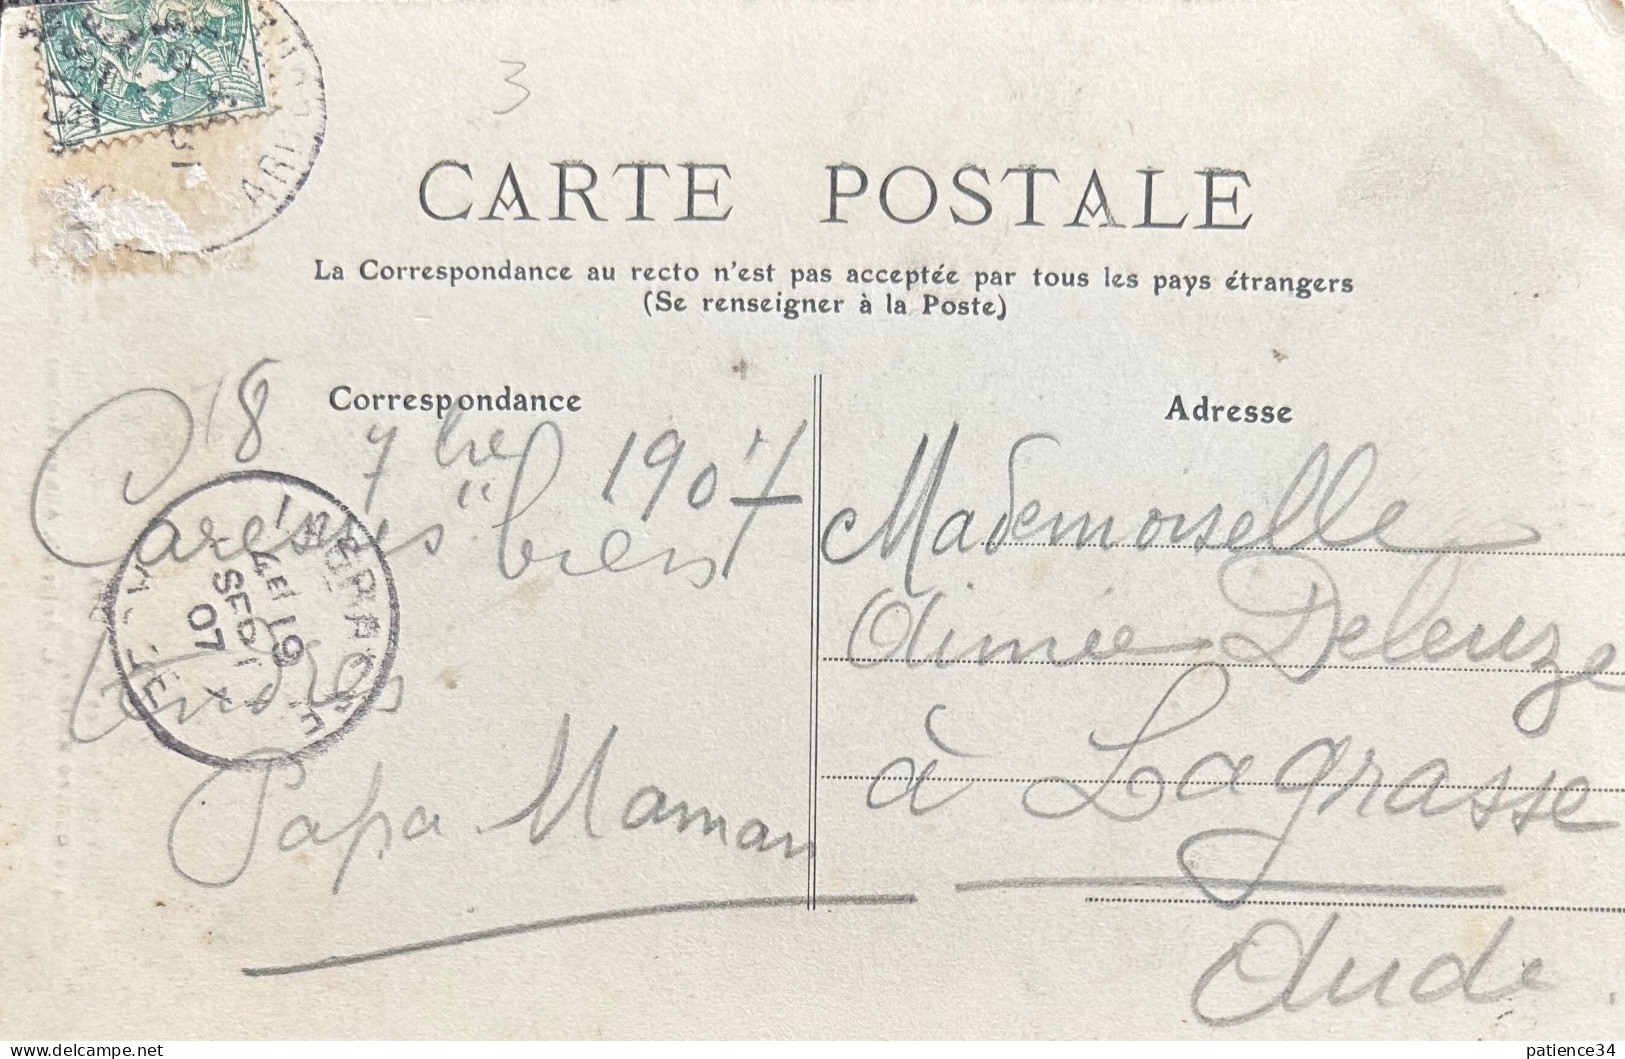 3
CARTE POSTALE
La Correspondance au recto n'est pas acceptée par tous les pays étrangers
(Se renseigner à la Poste)
Correspondance
Adresse
18 7bre 1907
Caresses bien
tendres
Papa Maman
Mademoiselle
Aimée Deleuze
à Lagrasse
Aude.
LAGRASSE
4E 19
SEPT
07
AUDE
www.delcampe.net
patience34